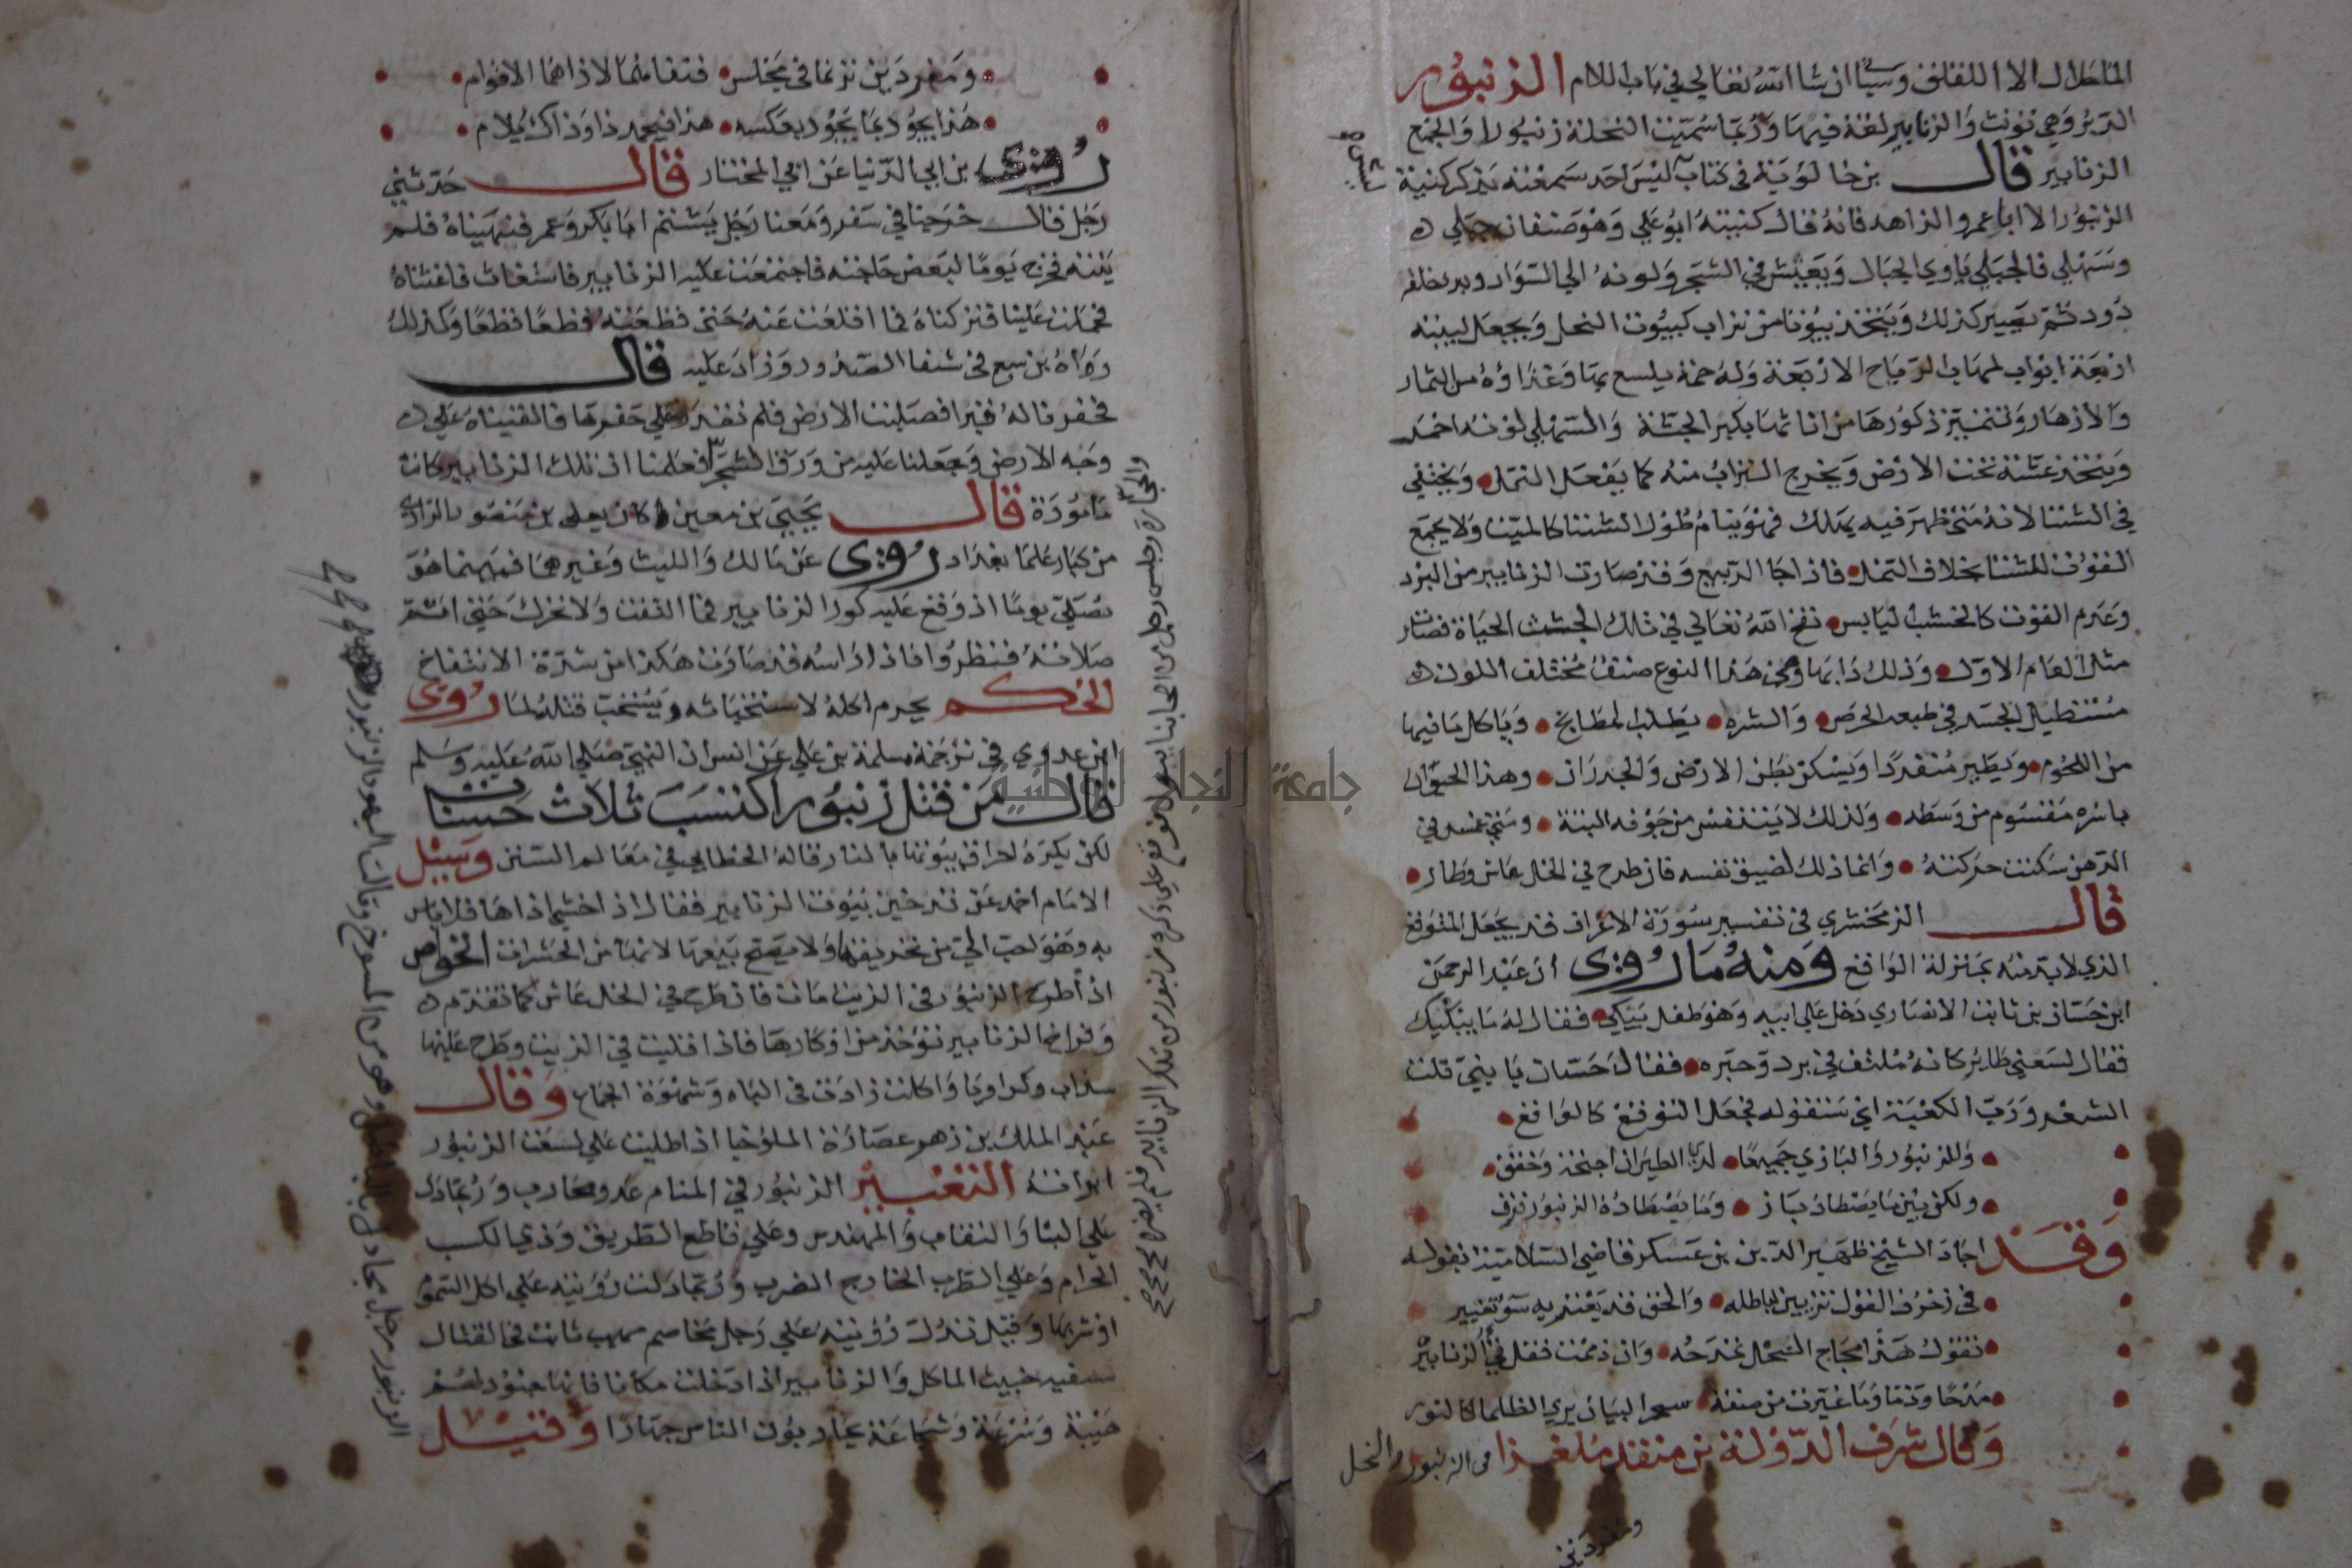 الماحلال الا اللقلق وسيأ ان شا الله تعالي في باب اللام الزنبور
الدبر وهي تونث والزنابير لغة فيها وربما سميت النحلة زنبورا والجمع
الزنابير قال بن خالويه في كتاب ليس احد سمعته يذكر كنية
الزنبور الا ابا عمرو الزاهد فانه قال كنيته ابو علي وهو صنفان جبلي
وسهلي فالجبلي ياوي الجبال ويعشش في الشجر ولونه الي السواد وبدء خلقه
دود ثم يصير كذلك ويتخذ بيوتا من تراب كبيوت النحل ويجعل لبيته
اربعة ابواب لمهاب الرياح الاربعة وله حمة يلسع بها وغذاؤه من الثمار
والازهار وتتميز ذكورها من اناثها بكبر الجثة والسهلي لونه احمر
ويتخذ عشه تحت الارض ويخرج التراب منه كما يفعل النمل ويختفي
في الشتا لانه متى ظهر فيه يهلك فهو ينام طول الشتا كالميت ولا يجمع
القوت للشتا بخلاف النمل فاذا جا الربيع وقد صارت الزنابير من البرد
وعدم القوت كالخشب اليابس نفخ الله تعالي في تلك الجثث الحياة فصارت
مثل العام الاول وذلك دابها ومن هذا النوع صنف مختلف اللون
مستطيل الجسد في طبعه الحرص والشره يطلب المطابخ وياكل ما فيها
من اللحوم ويطير منفردا ويسكن بطن الارض والجدران وهذا الحيوان
باسره مقسوم من وسطه ولذلك لا يتنفس من جوفه البتة ومتي غمس في
الدهن سكنت حركته وانما ذلك لضيق نفسه فان طرح في الخل عاش وطار
قال الزمخشري في تفسير سورة الاعراف قد يجعل المتوقع
الذي لابد منه بمنزلة الواقع ومنه ما روى ان عبد الرحمن
ابن حسان بن ثابت الانصاري دخل علي ابيه وهو طفل يبكي فقال له ما يبكيك
فقال لسعني طاير كانه ملتف في برد وحبره فقال حسان يا بني قلت
الشعر ورب الكعبة اي ستقوله فجعل التوقع كالواقع
وللزنبور والبازي جميعا لدي الطيران اجنحة وخفق
ولكن بين ما يصطاد باز وما يصطاده الزنبور فرق
وقد اجاد الشيخ ظهير الدين بن عسكر قاضي السلامية بقوله
في زخرف القول تزيين لباطله والحق قد يعتريه سو تغيير
تقول هذا مجاج النحل تمدحه وان ذممت فقل قي الزنابير
مدحا وذما وما غيرت من صفة سحر البيان يري الظلما كالنور
وقال شرف الدولة بن منقذ ملغزا في الزنبور والنحل
ومفردين
ومغردين ترنما في مجلس فتفاهما لاذاهما الاقوام
هذا يجود بما يجود بعكسه هذا فيحمد ذا وذاك يلام
روى بن ابي الدنيا عن ابي المختار قال حدثني
رجل قال خرجنا في سفر ومعنا رجل يشتم ابا بكر وعمر فنهيناه فلم
ينته فخرج يوما لبعض حاجته فاجتمعت عليه الزنابير فاستغاث فاغثناه
فحملت علينا فتركناه فما اقلعت عنه حتى قطعته قطعا قطعا وكذلك
رواه بن سبع في شفا الصدور وزاد عليه قال
فحفرنا له قبرا فصلبت الارض فلم نقدر علي حفرها فالقيناه علي
وجه الارض وجعلنا عليه من ورق الشجر فعلمنا ان تلك الزنابير كانت
مامورة قال يحيي بن معين كان يعلي بن منصور الرازي
من كبار علما بغداد روى عن مالك والليث وغيرهما فبينما هو
يصلي يوما اذ وقع عليه كور الزنابير فما التفت ولا تحرك حتى اتم
صلاته فنظروا فاذا راسه قد صارت هكذا من شدة الانتفاخ
الحكم يحرم اكله لاستخباثه ويستحب قتله لما روى
ابن عدي في ترجمة مسلمة بن علي عن انس ان النبي صلي الله عليه وسلم
قال من قتل زنبورا اكتسب ثلاث حسنات
لكن يكره احراق بيوتها بالنار قاله الخطابي في معالم السنن وسيل
الامام احمد عن تدخين بيوت الزنابير فقال اذا خشي اذاها فلا باس
به وهو احب الي من تحريقها ولا يصح بيعها لانها من الحشرات الخواص
اذا طرح الزنبور في الزيت مات فان طرح في الخل عاش كما تقدم
وفراخ الزنابير تؤخذ من اوكارها فاذا اقليت في الزيت وطرح عليها
سذاب وكراويا واكلت زادت في الباه وشهوة الجماع وقال
عبد الملك بن زهر عصارة الملوخيا اذا طليت علي لسعت الزنبور
ابراته التعبير الزنبور في المنام عدو محارب وربما دل
علي البنا والنقاب والمهندس وعلي قاطع الطريق وذي الكسب
الحرام وعلي المطرب الخارج الضرب وربما دلت رؤيته علي اكل السموم
او شربها وقيل تدل رؤيته علي رجل مخاصم مهيب ثابت في القتال
سفيه خبيث الماكل والزنابير اذا دخلت مكانا فانها جنود لهم
هيبة وسرعة وشجاعة يحاربون الناس جهارا وقيل
الزنبور رجل مجادل بالباطل وهو من المسوخ وقالت اليهود الزنبور